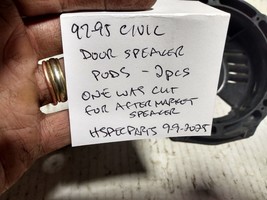 92-95 CIVIC
DOOR SPEAKER
PODS - 2pcs
ONE WAS CUT
FOR AFTERMARKET
SPEAKER
HSPECPARTS 9-9-2025